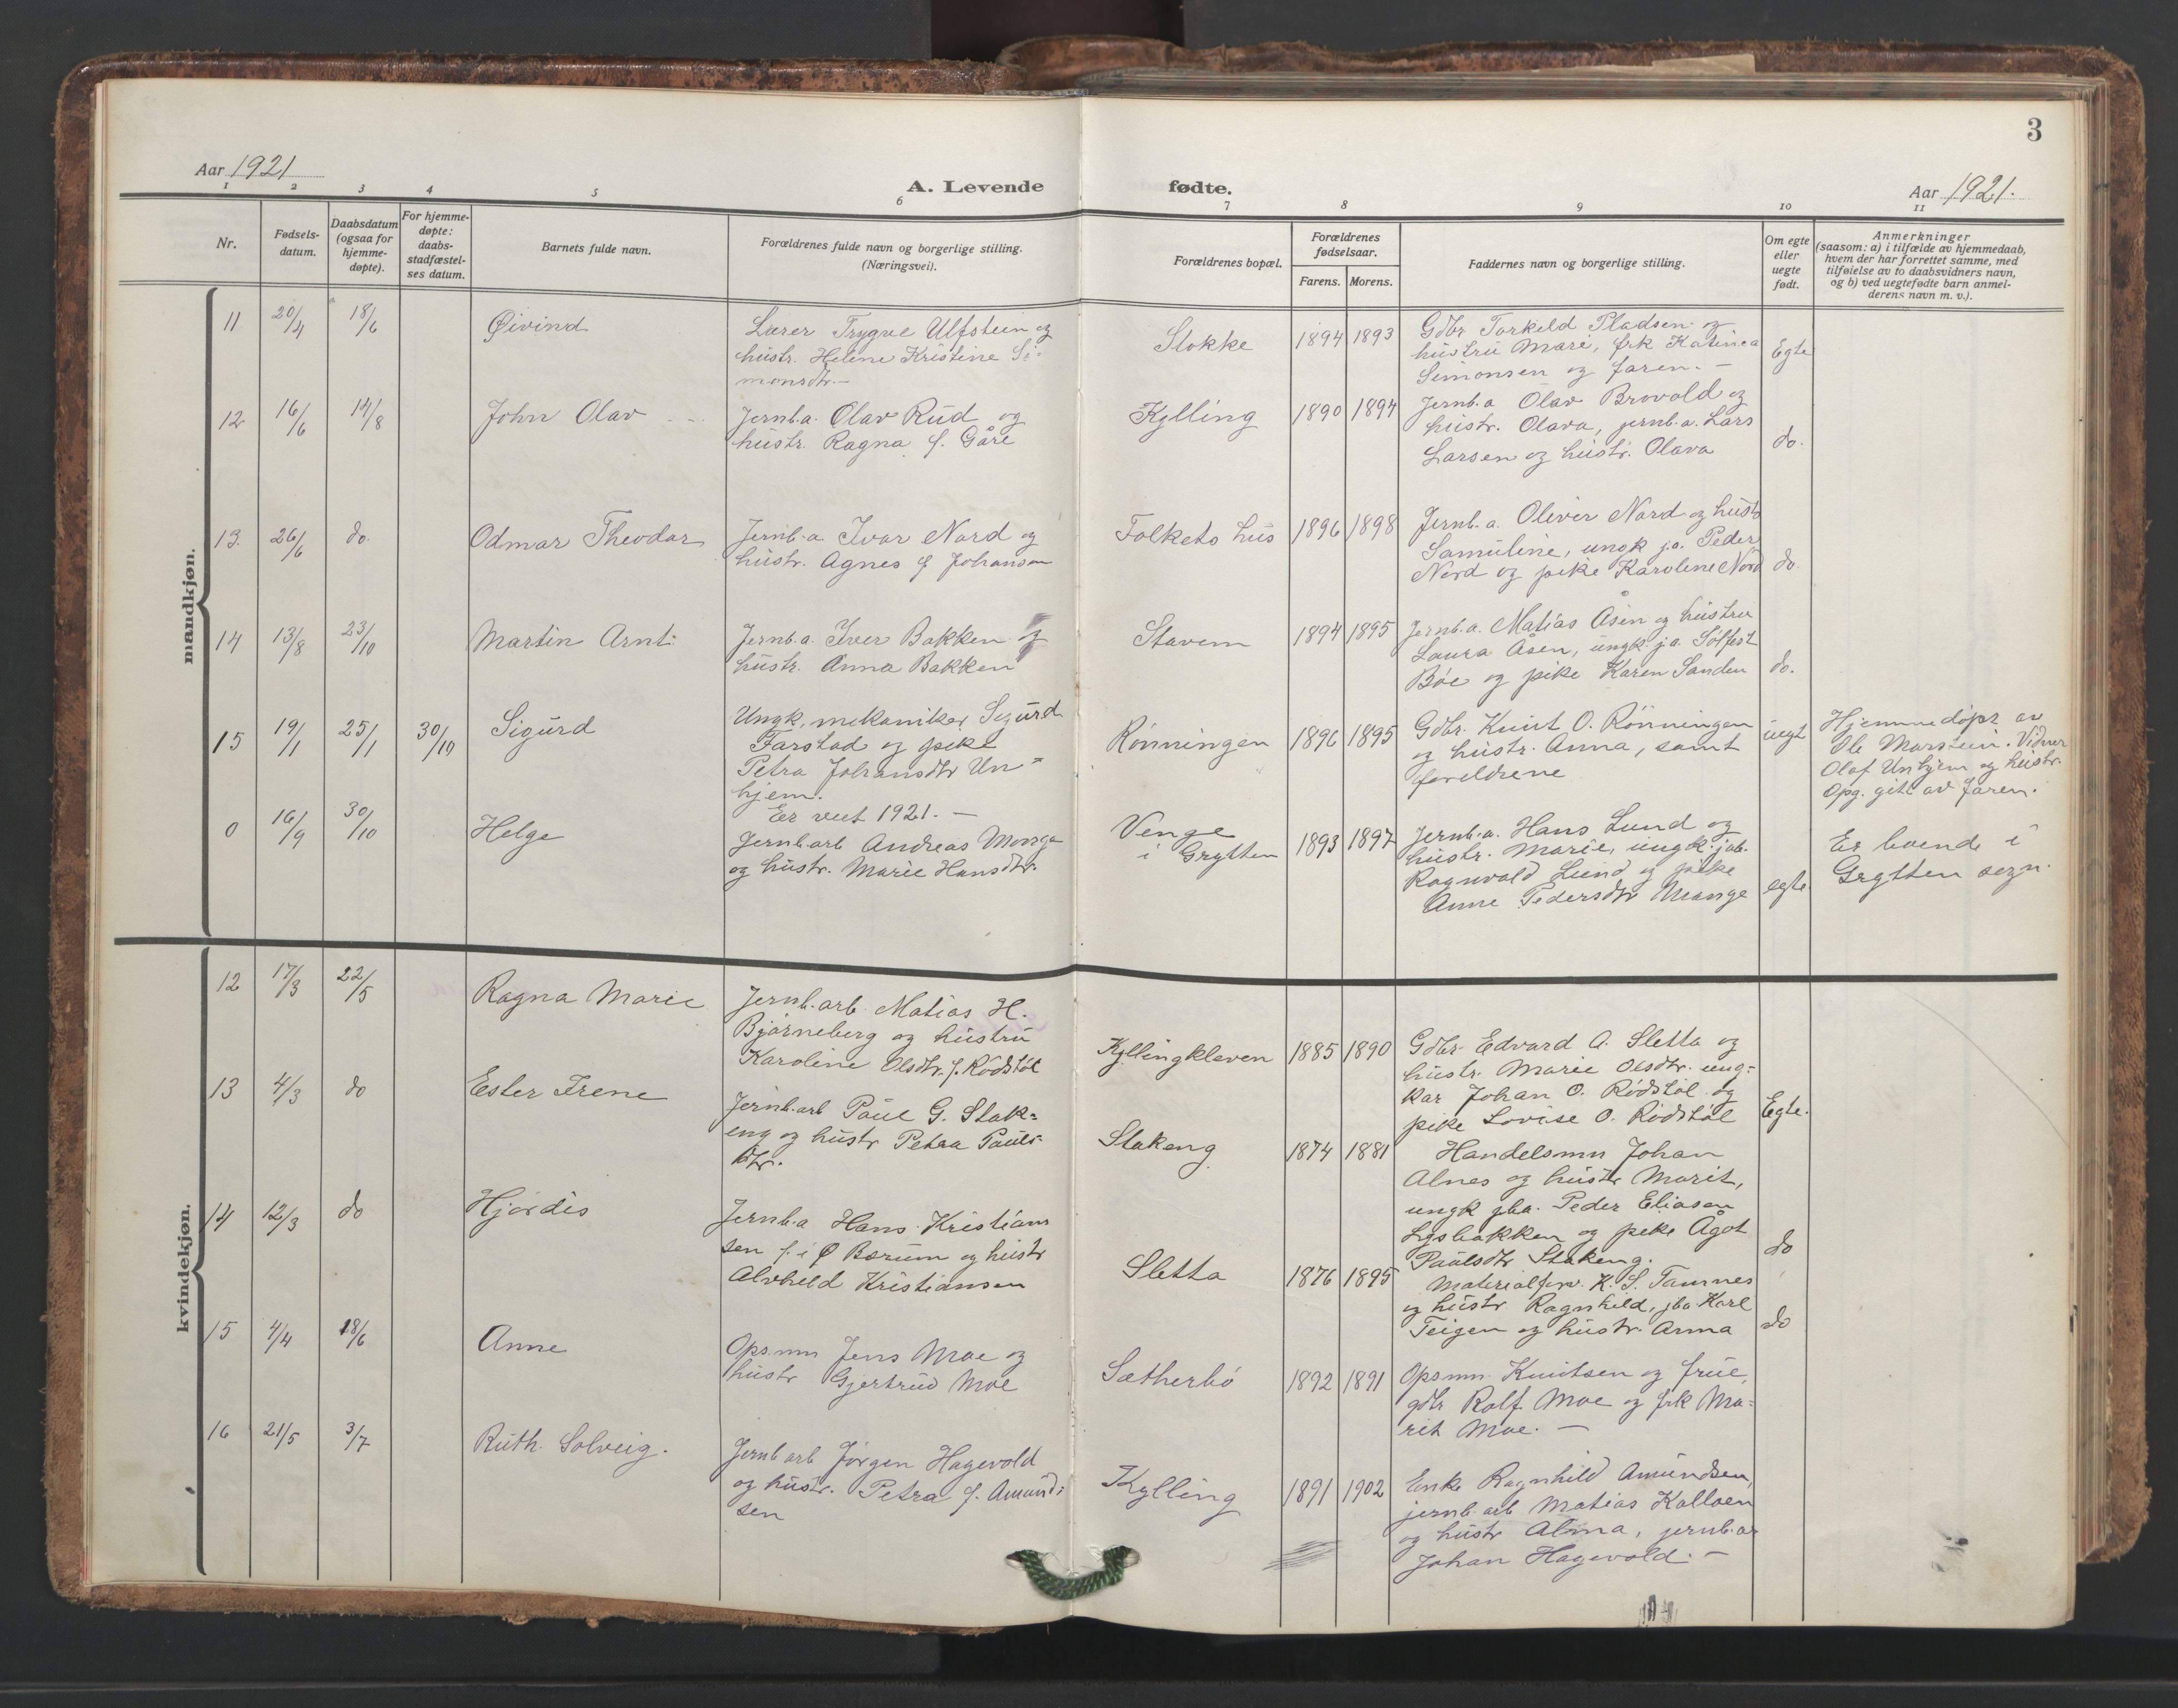 3
Aar 1921
A. Levende fødte.
Aar 1921.
1 2 3 4 5 6 7 8 9 10 11
Nr.
Fødsels-
datum.
Daabsdatum
(ogsaa for
hjemme-
døpte).
For hjemme-
døpte:
daabs-
stadfæstel-
ses datum.
Barnets fulde navn.
Forældrenes fulde navn og borgerlige stilling.
(Næringsvei).
Forældrenes bopæl.
Forældrenes
fødselsaar.
Farens. Morens.
Faddernes navn og borgerlige stilling.
Om egte
eller
uegte
født.
Anmerkninger
(saasom: a) i tilfælde av hjemmedaab,
hvem der har forrettet samme, med
tilføielse av to daabsvidners navn,
og b) ved uegtefødte barn anmel-
derens navn m. v.).
mandkjøn.
11 20/4 18/6 Øivind
Lærer Trygve Ulfstein og
hustr. Helene Kristine Si-
monsdtr.-
Stokke 1894 1893
Gdbr Torkeld Pladsen og
hustru Mari, frk Katinca
Simonsen og faren. -
Egte
12 16/6 14/8 John Olav
Jernb.a. Olav Rud og
hustr. Ragna f. Gåre
Kylling 1890 1894
Jernb.a Olav Brovold og
hustr. Olava, jernb.a. Lars
Larsen og hustr. Olava
do.
13. 26/6 do. Odmar Theodor
Jernb.a. Ivar Nord og
hustr. Agnes f Johansen
Folkets hus 1896 1898
Jernb.a. Oliver Nord og hustr
Samuline, ungk j.a. Peder
Nord og pike Karoline Nord
do.
14 13/8 23/10 Martin Arnt
Jernb.a. Iver Bakken og
hustr. Anna Bakken
Stavem 1894 1895
Jernb.a. Matias Åsen og hustru
Laura Åsen, ungk. j.a. Solfest
Bøe og pike Karen Sanden
do.
15 19/1 25/1 30/10 Sigurd
Ungk. mekaniker Sigurd
Farstad og pike
Petra Johansdtr Un-
hjem.
Er viet 1921. -
Rønningen 1896 1895
Gdbr. Knut O. Rønningen
og hustr. Anna, samt
foreldrene
uegt
Hjemmedøpt av
Ole Marstein. Vidner
Olaf Unhjem og hustr.
Opg. git av faren.
0 16/9 30/10 Helge
Jernb.arb Andreas Monge
og hustr. Marie Hansdtr.
Venge
i Grytten 1893 1897
Jernb.a. Hans Lund og
hustr. Marie, ungk. jab.
Ragnvald Lund og pike
Anne Pedersdtr Monge
egte
Er boende i
Grytten sogn.
kvindekjøn.
12 17/3 22/5 Ragna Marie
Jernb.arb. Matias H.
Bjørneberg og hustru
Karoline Olsdtr. f. Rødstøl
Kyllingkleven 1885 1890
Gdbr. Edvard A. Sletta og
hustr. Marie Olsdtr. ung-
kar Johan O. Rødstøl og
pike Lovise O. Rødstøl
Egte.
13 4/3 do Ester Irene
Jernb.arb Paul G. Stak-
eng og hustr Petra Pauls-
dtr.
Stakeng 1874 1881
Handelsmn Johan
Alnes og hustr Marit,
ungk jba. Peder Eliasen
Lysbakken og pike Ågot
Paulsdtr Stakeng.
do
14 12/3 do Hjørdis
Jernb.a Hans Kristian
sen f. i Ø Bærum og hustr
Alvhild Kristiansen
Sletta 1876 1895
Materialforv. K. S. Tamnes
og hustr Ragnhild, jba Karl
Teigen og hustr. Anna
do
15 4/4 18/6 Anne
Opsmn Jens Moe og
hustr Gjertrud Moe
Sætherbø 1892 1891
Opsmn. Knutsen og frue,
gdbr Rolf Moe og frk Ma-
rit Moe. -
16 21/5 3/7 Ruth Solveig.
Jernb arb Jørgen Hagevold
og hustr. Petra f. Amund-
sen
Kylling 1891 1902
Enke Ragnhild Amundsen,
jernb.arb Matias Kolloen
og hustr Alma, jernb.ar
Johan Hagevold. -